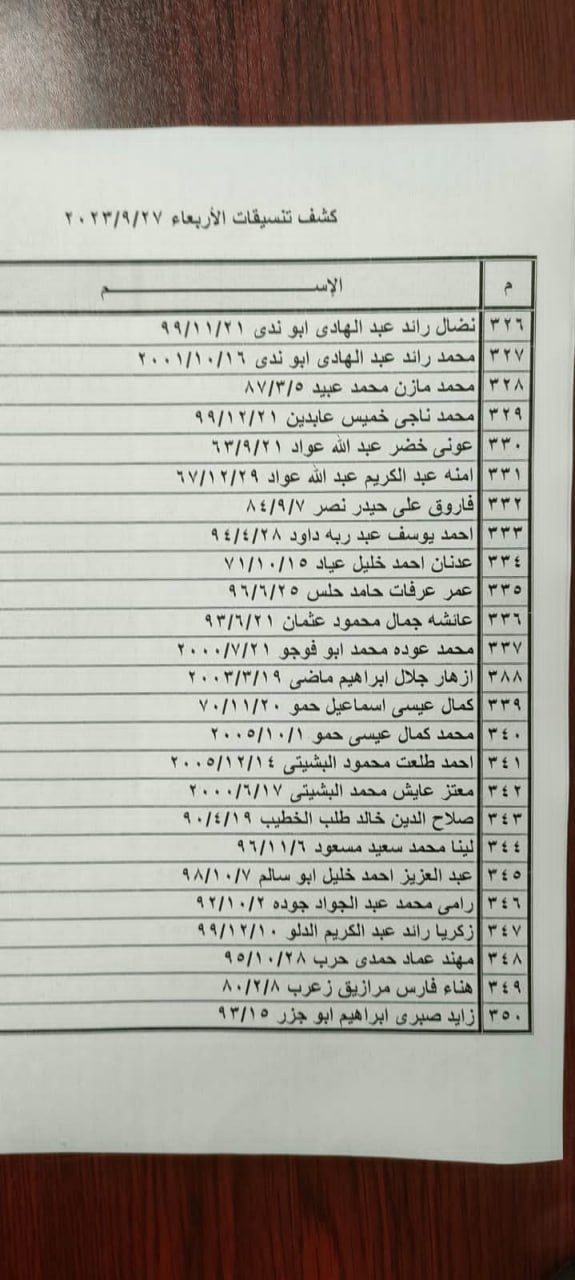 كشف تنسيقات الأربعاء ٢٠٢٣/٩/٢٧
م الإســـــــــــــــــــــــــم
٣٢٦ نضال رائد عبد الهادى ابو ندى ٩٩/١١/٢١
٣٢٧ محمد رائد عبد الهادى ابو ندى ٢٠٠١/١٠/١٦
٣٢٨ محمد مازن محمد عبيد ٨٧/٣/٥
٣٢٩ محمد ناجى خميس عابدين ٩٩/١٢/٢١
٣٣٠ عونى خضر عبد الله عواد ٦٣/٩/٢١
٣٣١ امنه عبد الكريم عبد الله عواد ٦٧/١٢/٢٩
٣٣٢ فاروق على حيدر نصر ٨٤/٩/٧
٣٣٣ احمد يوسف عبد ربه داود ٩٤/٤/٢٨
٣٣٤ عدنان احمد خليل عياد ٧١/١٠/١٥
٣٣٥ عمر عرفات حامد حلس ٩٦/٦/٢٥
٣٣٦ عائشه جمال محمود عثمان ٩٣/٦/٢١
٣٣٧ محمد عوده محمد ابو فوجو ٢٠٠٠/٧/٢١
٣٨٨ ازهار جلال ابراهيم ماضى ٢٠٠٣/٣/١٩
٣٣٩ كمال عيسى اسماعيل حمو ٧٠/١١/٢٠
٣٤٠ محمد كمال عيسى حمو ٢٠٠٥/١٠/١
٣٤١ احمد طلعت محمود البشيتى ٢٠٠٥/١٢/١٤
٣٤٢ معتز عايش محمد البشيتى ٢٠٠٠/٦/١٧
٣٤٣ صلاح الدين خالد طلب الخطيب ٩٠/٤/١٩
٣٤٤ لينا محمد سعيد مسعود ٩٦/١١/٦
٣٤٥ عبد العزيز احمد خليل ابو سالم ٩٨/١٠/٧
٣٤٦ رامى محمد عبد الجواد جوده ٩٢/١٠/٢
٣٤٧ زكريا رائد عبد الكريم الدلو ٩٩/١٢/١٠
٣٤٨ مهند عماد حمدى حرب ٩٥/١٠/٢٨
٣٤٩ هناء فارس مرازيق زعرب ٨٠/٢/٨
٣٥٠ زايد صبرى ابراهيم ابو جزر ٩٣/١٥